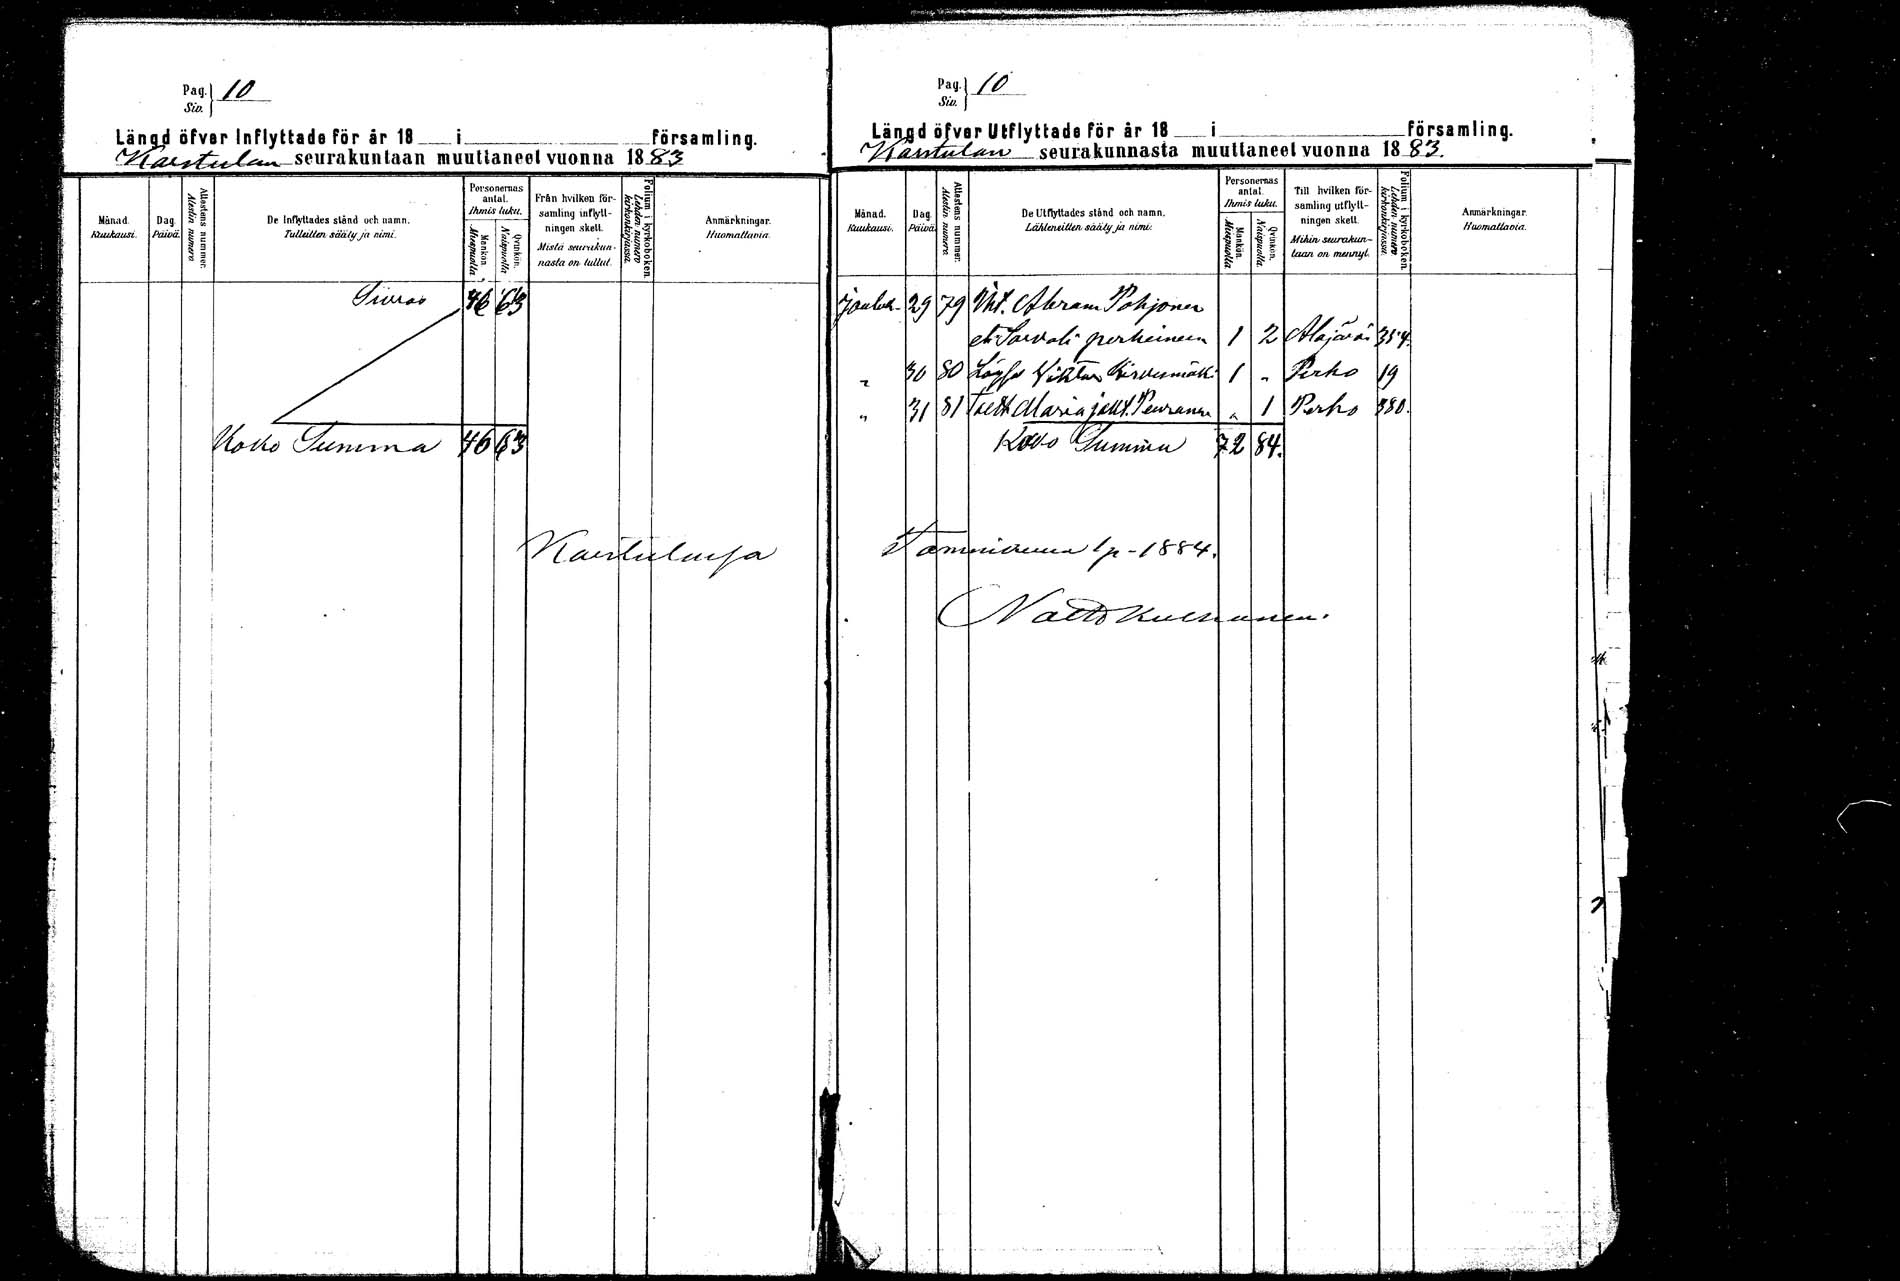 Pag. 10
Siv.
Längd öfver Inflyttade för år 18 i församling.
Karstulan seurakuntaan muuttaneet vuonna 1883
Månad. Kuukausi.
Dag. Päivä.
Attestens nummer. Atestin numero.
De Inflyttades stånd och namn. Tulleitten sääty ja nimi.
Personernas antal. Ihmis luku.
Mankön. Miespuolia
Qvinkön. Naispuolia
Från hvilken församling inflyttningen skett. Mistä seurakunnasta on tullut.
Folium i kyrkoboken. Lehden numero kirkonkirjassa.
Anmärkningar. Huomattavia.
Siirros 46 63
Koko Summa 46 63
Pag. 10
Siv.
Längd öfver Utflyttade för år 18 i församling.
Karstulan seurakunnasta muuttaneet vuonna 1883.
Månad. Kuukausi.
Dag. Päivä.
Attestens nummer. Atestin numero.
De Utflyttades stånd och namn. Lähteneitten sääty ja nimi.
Personernas antal. Ihmis luku.
Mankön. Miespuolia.
Qvinkön. Naispuolia.
Till hvilken församling utflyttningen skett. Mihin seurakuntaan on mennyt.
Folium i kyrkoboken. Lehden numero kirkonkirjassa.
Anmärkningar. Huomattavia.
Jouluk. 29 79 Abram Pohjonen
perheineen 1 2 Alajärvi 354.
" 30 80 Viktor 1 " Perho 19
" 31 81 Maria " 1 Perho 380.
Koko Summa 72 84.
Karstulassa Tammikuun 1 p. 1884.